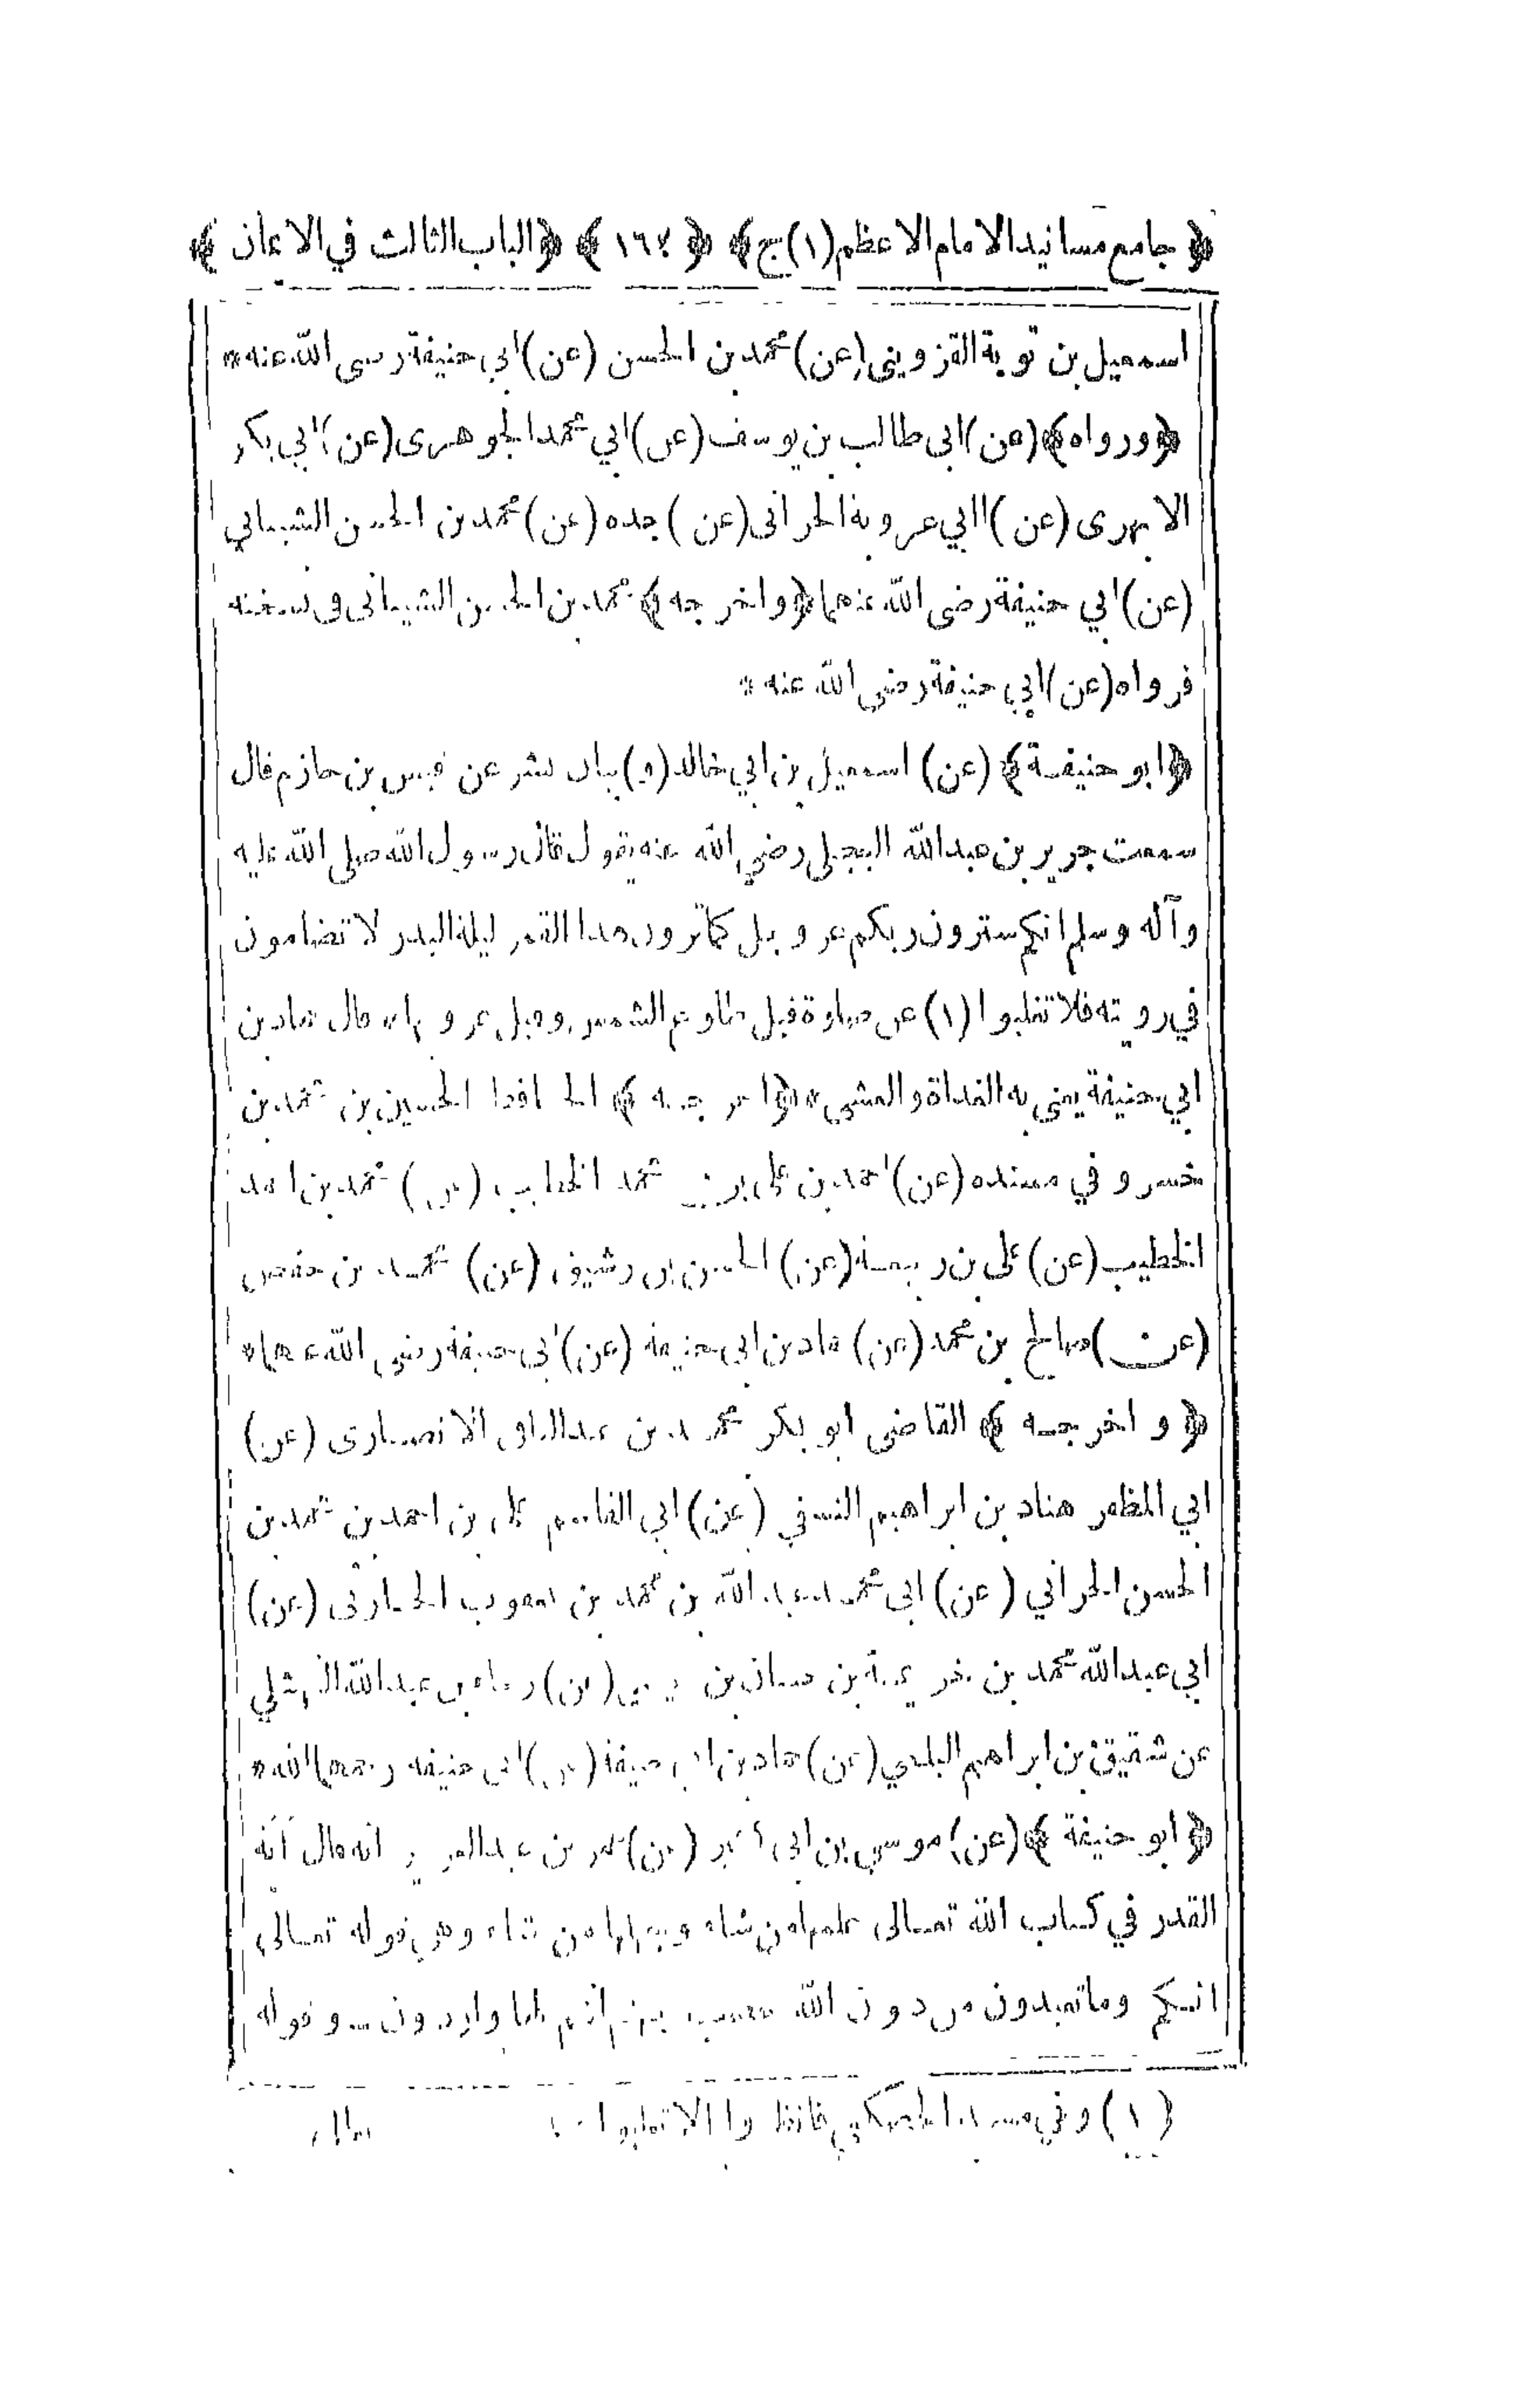 ﴿ جامع مسانيد الامام الاعظم (١) ج ﴾ ﴿ ١٦٤ ﴾ ﴿ الباب الثالث في الايمان ﴾
اسمعيل بن توبة القزويني (عن) محمد بن الحسن (عن) ابي حنيفة رضى الله عنه *
﴿ ورواه ﴾ (عن) ابى طالب بن يوسف (عن) ابي محمد الجوهرى (عن) ابي بكر
الابهرى (عن) ابي عروبة الحرانى (عن) جده (عن) محمد بن الحسن الشيباني
(عن) ابي حنيفة رضى الله عنهما ﴿ واخرجه ﴾ محمد بن الحسن الشيبانى في نسخته
فرواه (عن) ابي حنيفة رضى الله عنه *
﴿ ابو حنيفة ﴾ (عن) اسمعيل بن ابي خالد (و) بيان بشر عن قيس بن حازم قال
سمعت جرير بن عبد الله البجلى رضي الله عنه يقول قال رسول الله صلى الله عليه
وآله وسلم انكم سترون ربكم عز وجل كما ترون هذا القمر ليلة البدر لا تضامون
في رويته فلا تغلبوا (١) عن صلوة قبل طلوع الشمس وقبل غروبها قال حماد بن
ابي حنيفة يعنى به الغداة والعشى * ﴿ اخرجه ﴾ الحافظ الحسين بن محمد بن
خسرو في مسنده (عن) احمد بن على بن محمد الخطاب (عن) محمد بن احمد
الخطيب (عن) على بن ربيعة (عن) الحسن بن رشيق (عن) محمد بن حفص
(عن) صالح بن محمد (عن) حماد بن ابى حنيفة (عن) ابى حنيفة رضى الله عنهما *
﴿ واخرجه ﴾ القاضى ابو بكر محمد بن عبد الباقى الانصارى (عن)
ابي المظفر هناد بن ابراهيم النسفي (عن) ابى القاسم على بن احمد بن محمد بن
الحسن الحراني (عن) ابى محمد عبد الله بن محمد بن يعقوب الحارثى (عن)
ابى عبد الله محمد بن خزيمة بن حسان بن (عن) بن عبد الله
عن شقيق بن ابراهيم البلخي (عن) حماد بن ابى حنيفة (عن) ابى حنيفة رحمهما الله *
﴿ ابو حنيفة ﴾ (عن) موسى بن ابى كثير (عن) عمر بن عبد العزيز انه قال آية
القدر في كتاب الله تعالى علمها من شاء وجهلها من شاء وهى قوله تعالى
انكم وما تعبدون من دون الله حصب جهنم انتم لها واردون – وقوله
(١) وفي مسند الحصكفي فانظروا ان لا تغلبوا